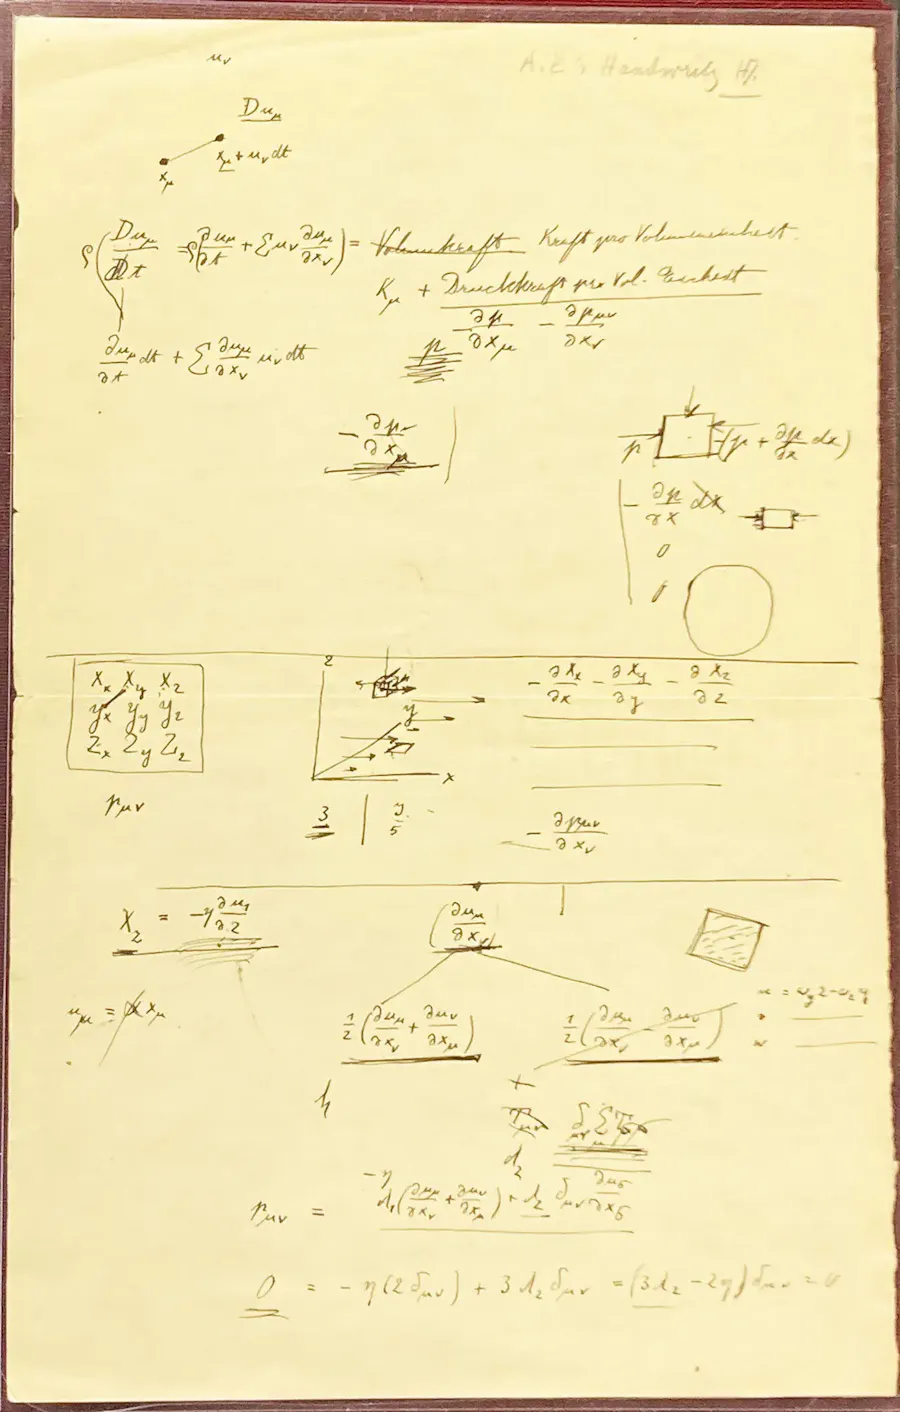 u_ν
A. E's Handwriting
Du_μ
x_μ + u_ν dt
x_μ
ρ ( Du_μ / Dt = ρ( ∂u_μ/∂t + Σ u_ν ∂u_μ/∂x_ν ) = Volumkraft Kraft pro Volumeneinheit.
K_μ + Druckkraft pro Vol. Einheit
p - ∂p/∂x_μ - ∂p_μν/∂x_ν
∂u_μ/∂t dt + Σ ∂u_μ/∂x_ν u_ν dt
- ∂p/∂x_μ
p (p + ∂p/∂x dx)
- ∂p/∂x dx
0
0
X_x X_y X_z
Y_x Y_y Y_z
Z_x Z_y Z_z
p_μν
z
y
x
3 | y/5
- ∂X_x/∂x - ∂X_y/∂y - ∂X_z/∂z
- ∂p_μν/∂x_ν
X_z = -η ∂u_1/∂z
( ∂u_μ/∂x_ν )
u_μ = α x_μ
1/2 ( ∂u_μ/∂x_ν + ∂u_ν/∂x_μ )
1/2 ( ∂u_μ/∂x_ν - ∂u_ν/∂x_μ )
u = ω_y z - ω_z y
v
w
+
δ_μν Σ
d_2
p_μν = -η d_1 ( ∂u_μ/∂x_ν + ∂u_ν/∂x_μ ) + d_2 δ_μν ∂u_σ/∂x_σ
0 = - η (2 δ_μν) + 3 d_2 δ_μν = (3 d_2 - 2η) δ_μν = 0